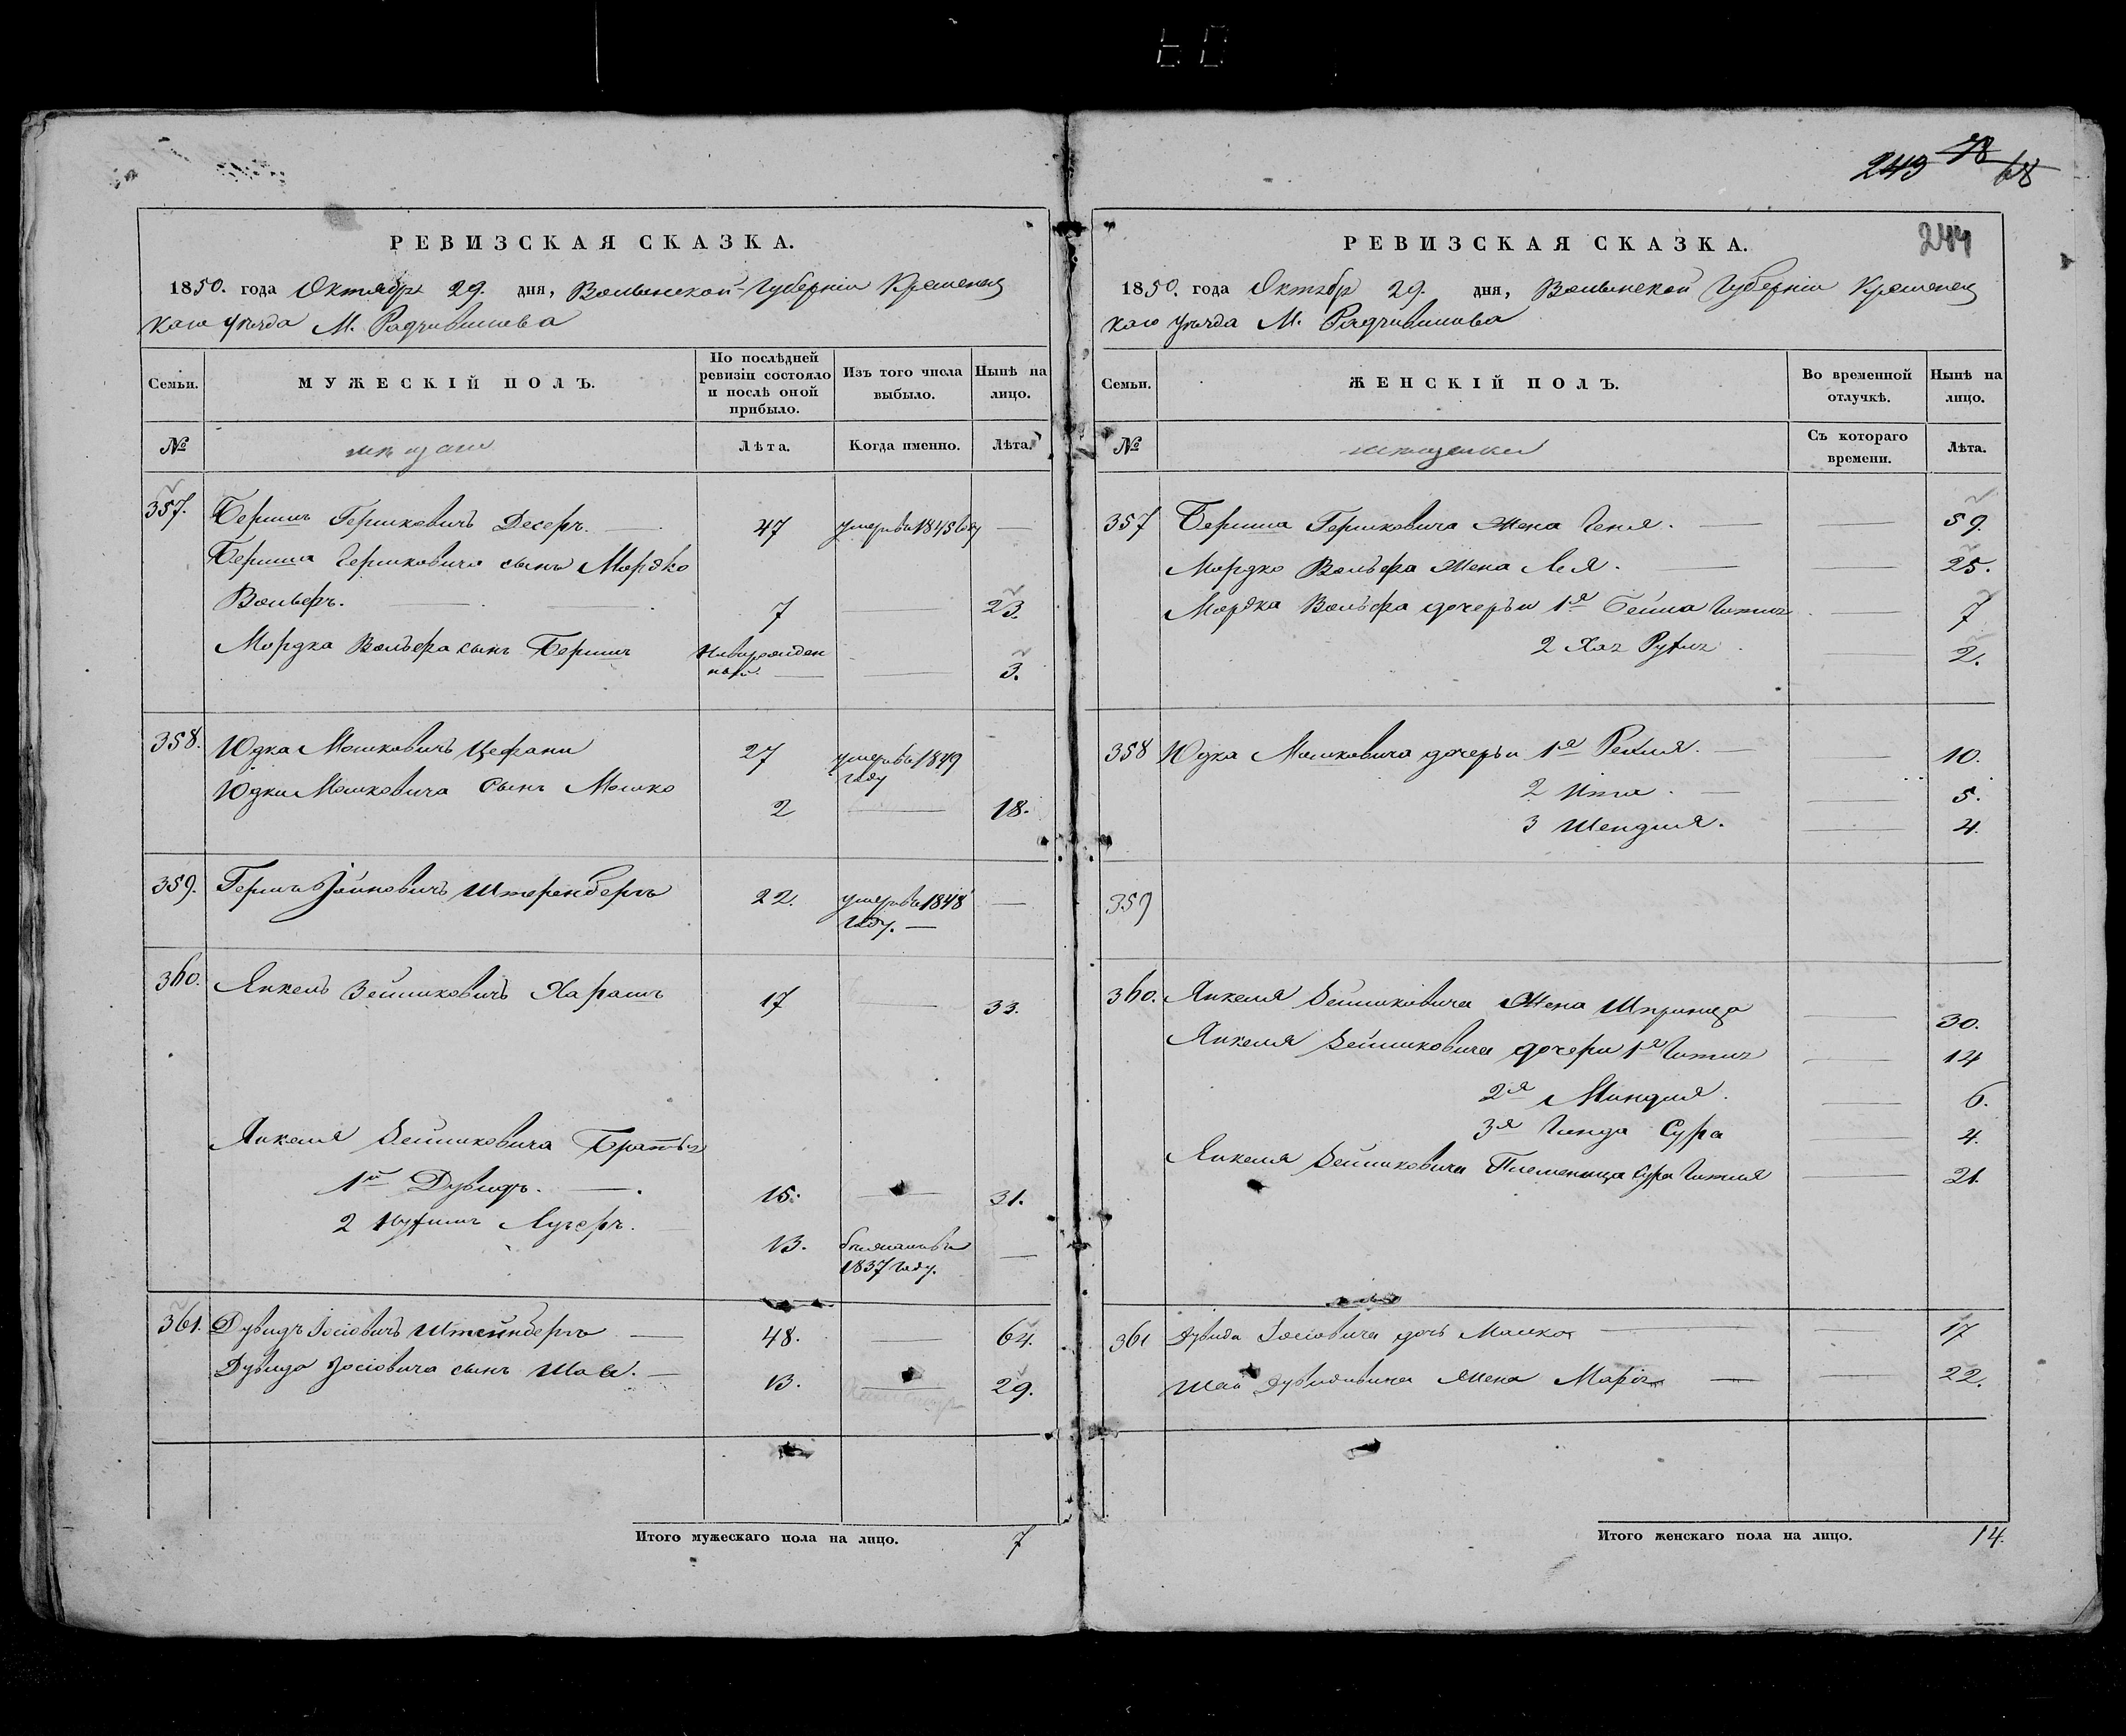 243 78 68
РЕВИЗСКАЯ СКАЗКА.
1850. года Октября 29. дня, Волынской Губерніи Кременец
каго уѣзда М. Радзивилова
Семьи.
МУЖЕСКІЙ ПОЛЪ.
По послѣдней ревизіи состояло и послѣ оной прибыло.
Изъ того числа выбыло.
Нынѣ на лицо.
№
мѣщане
Лѣта.
Когда именно.
Лѣта.
357. Бершъ Гершковичъ Десеръ. 47 умеръ въ 1845 году —
Берша Гершковича сынъ Мордко
Вольфъ. 7 — 23.
Мордка Вольфа сынъ Бершъ Новорожден
ный — 3.
358. Юдка Мошковичъ Цефани 27 умеръ въ 1849
году
Юдки Мошковича сынъ Мошко 2 — 18.
359. Гершъ Іойновичъ Штеренбергъ 22. умеръ въ 1848 —
году.
360. Янкель Зейликовичъ Харашъ 17 — 33.
Янкеля Зейликовича Братья
1й Дувидъ. 15. — 31.
2 Лузеръ. 13. въ —
1837 году.
361. Дувидъ Іосіовичъ Штейнбергъ — 48. — 64.
Дувида Іосіовича сынъ Шая. — 13. — 29.
Итого мужескаго пола на лицо. 7
РЕВИЗСКАЯ СКАЗКА.
244
1850. года Октябр 29. дня, Волынской Губерніи Кременец
каго уѣзда М. Радзивилова
Семьи.
ЖЕНСКІЙ ПОЛЪ.
Во временной отлучкѣ.
Нынѣ на лицо.
№
мѣщанки
Съ котораго времени.
Лѣта.
357 Берша Гершковича жена Геня. — — 59.
Мордко Вольфа жена Лея. — — 25.
Мордка Вольфа дочери 1я Бейла Гитля — 7
2 Хая Рухля — 2.
358 Юдка Мошковича дочери 1я Рейзля. — — 10.
2 Ита. — — 5.
3 Шендля. — 4.
359
360. Янкеля Зейликовича жена Шпринца — 30.
Янкеля Зейликовича дочери 1я Гитля — 14
2я Миндля. — 6.
3я Гинда Сура — 4.
Янкеля Зейликовича Племеница Сура Гитля — 21.
361 Дувида Іосіовича дочь Малка — — 17
Шаи Дувидовича жена Маріа — — 22.
Итого женскаго пола на лицо. 14.